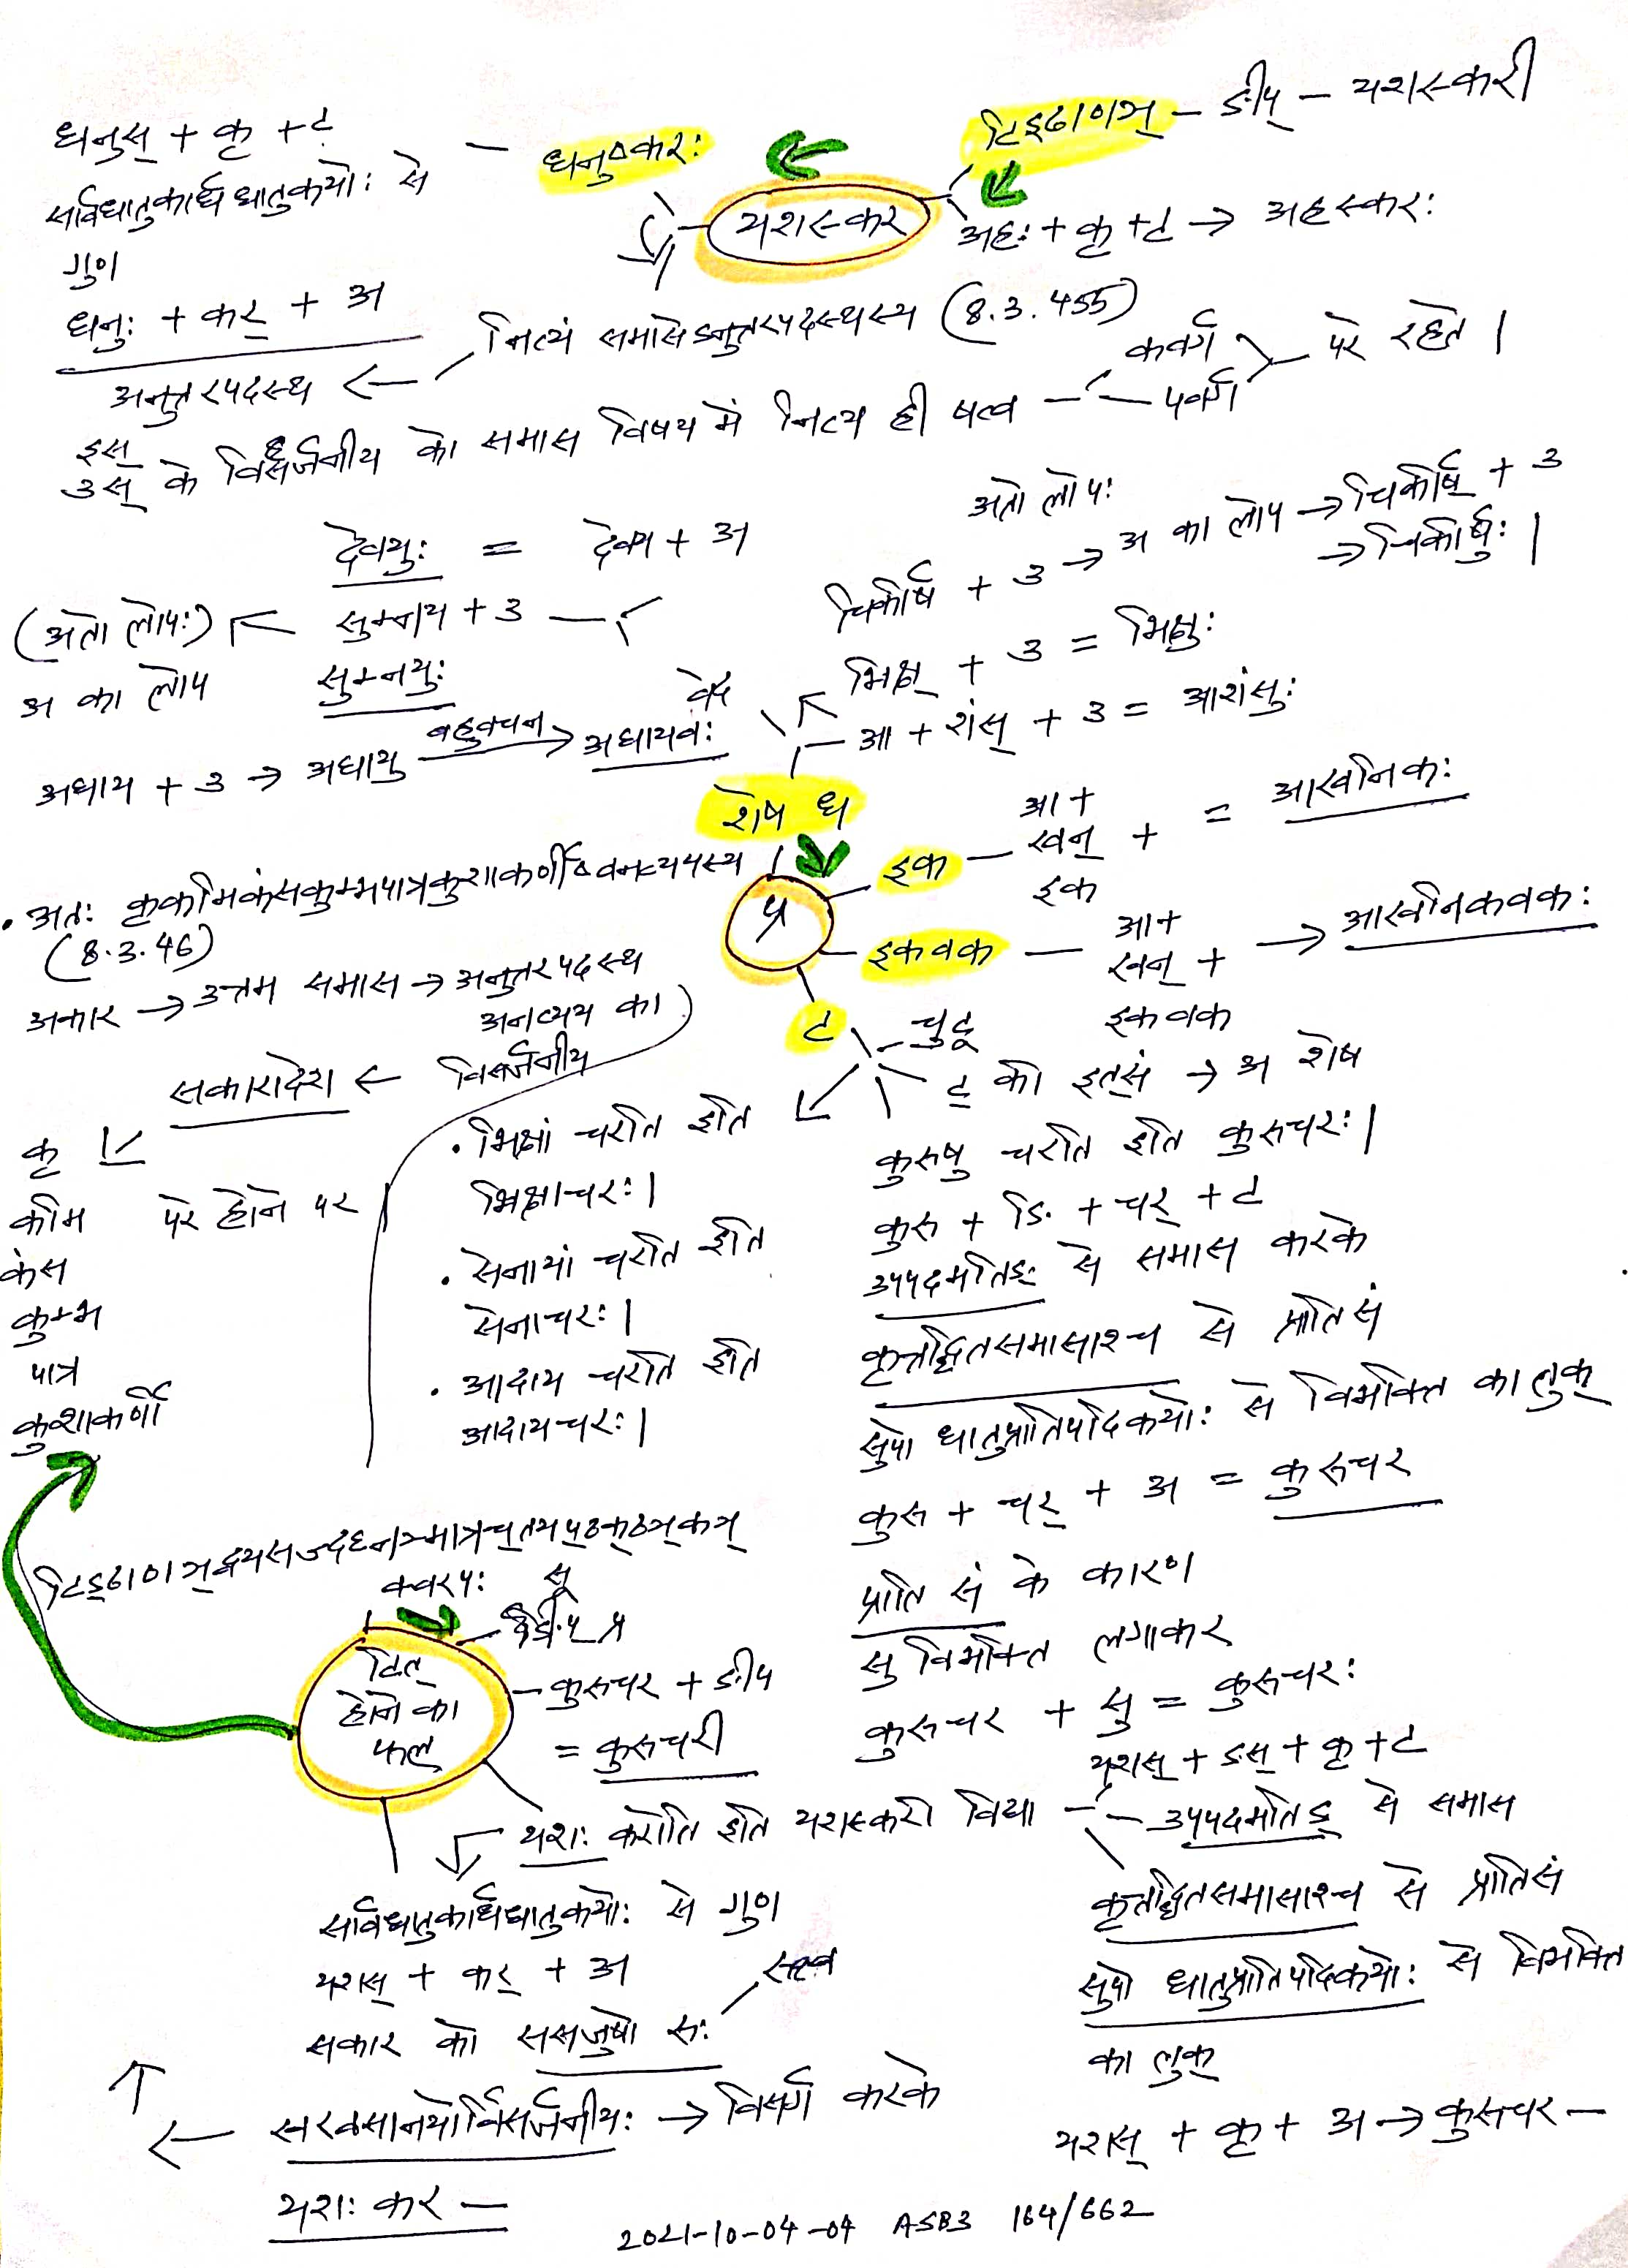 टिड्ढाणञ् – ङीप् – यशस्करी
धनुस् + कृ + ट – धनुष्करः
यशस्कर
सार्वधातुकार्धधातुकयोः से
गुण
अहः + कृ + ट → अहस्करः
धनुः + कर् + अ
नित्यं समासेऽनुत्तरपदस्थस्य (8.3.455)
अनुत्तरपदस्थ ←
कवर्ग
पवर्ग
परे रहते ।
इस्
उस् के विसर्जनीय को समास विषय में नित्य ही षत्व –
अतो लोपः
चिकीर्ष + उ → अ का लोप → चिकीर्ष् + उ
→ चिकीर्षुः ।
देवयुः = देवय + अ
(अतो लोपः) सुम्नाय + उ –
अ का लोप सुम्नयुः
भिक्ष् + उ = भिक्षुः
आ + शंस् + उ = आशंसुः
अधाय + उ → अधायु बहुवचन → अधायवः
शेष ध
प्र
इक – आ +
खन् +
इक
= आखनिकः
इकवक – आ +
खन् +
इकवक
→ आखनिकवकः
• अतः कृकमिकंसकुम्भपात्रकुशाकर्णीष्वनव्ययस्य
(8.3.46)
अकार → उत्तम समास → अनुत्तरपदस्थ
अनव्यय का
सकारादेश ← विसर्जनीय
कृ
कमि परे होने पर
कंस
कुम्भ
पात्र
कुशाकर्णी
ट
चुटू
ट् की इत्सं → अ शेष
• भिक्षां चरति इति
भिक्षाचरः ।
• सेनायां चरति इति
सेनाचरः ।
• आदाय चरति इति
आदायचरः ।
कुरुषु चरति इति कुरुचरः ।
कुरु + ङि + चर् + ट
उपपदमतिङ् से समास करके
कृत्तद्धितसमासाश्च से प्राति सं
सुपो धातुप्रातिपदिकयोः से विभक्ति का लुक्
कुरु + चर् + अ = कुरुचर
प्राति सं के कारण
सु विभक्ति लगाकर
कुरुचर + सु = कुरुचरः
टिड्ढाणञ्द्वयसज्दघ्नञ्मात्रच्तयप्ठक्ठञ्कञ्
क्वरपः सू
टित्
होने का
फल
– कुरुचर + ङीप
= कुरुचरी
यशः करोति इति यशस्करी विद्या –
यशस् + ङस् + कृ + ट
– उपपदमतिङ् से समास
कृत्तद्धितसमासाश्च से प्राति सं
सुपो धातुप्रातिपदिकयोः से विभक्ति
का लुक्
यशस् + कृ + अ → कुरुचर –
सार्वधातुकार्धधातुकयोः से गुण
यशस् + कर् + अ
सकार को ससजुषो रुः
रुत्व
← खरवसानयोर्विसर्जनीयः → विसर्ग करके
यशः कर –
2021-10-04-04 ASB3 164/662